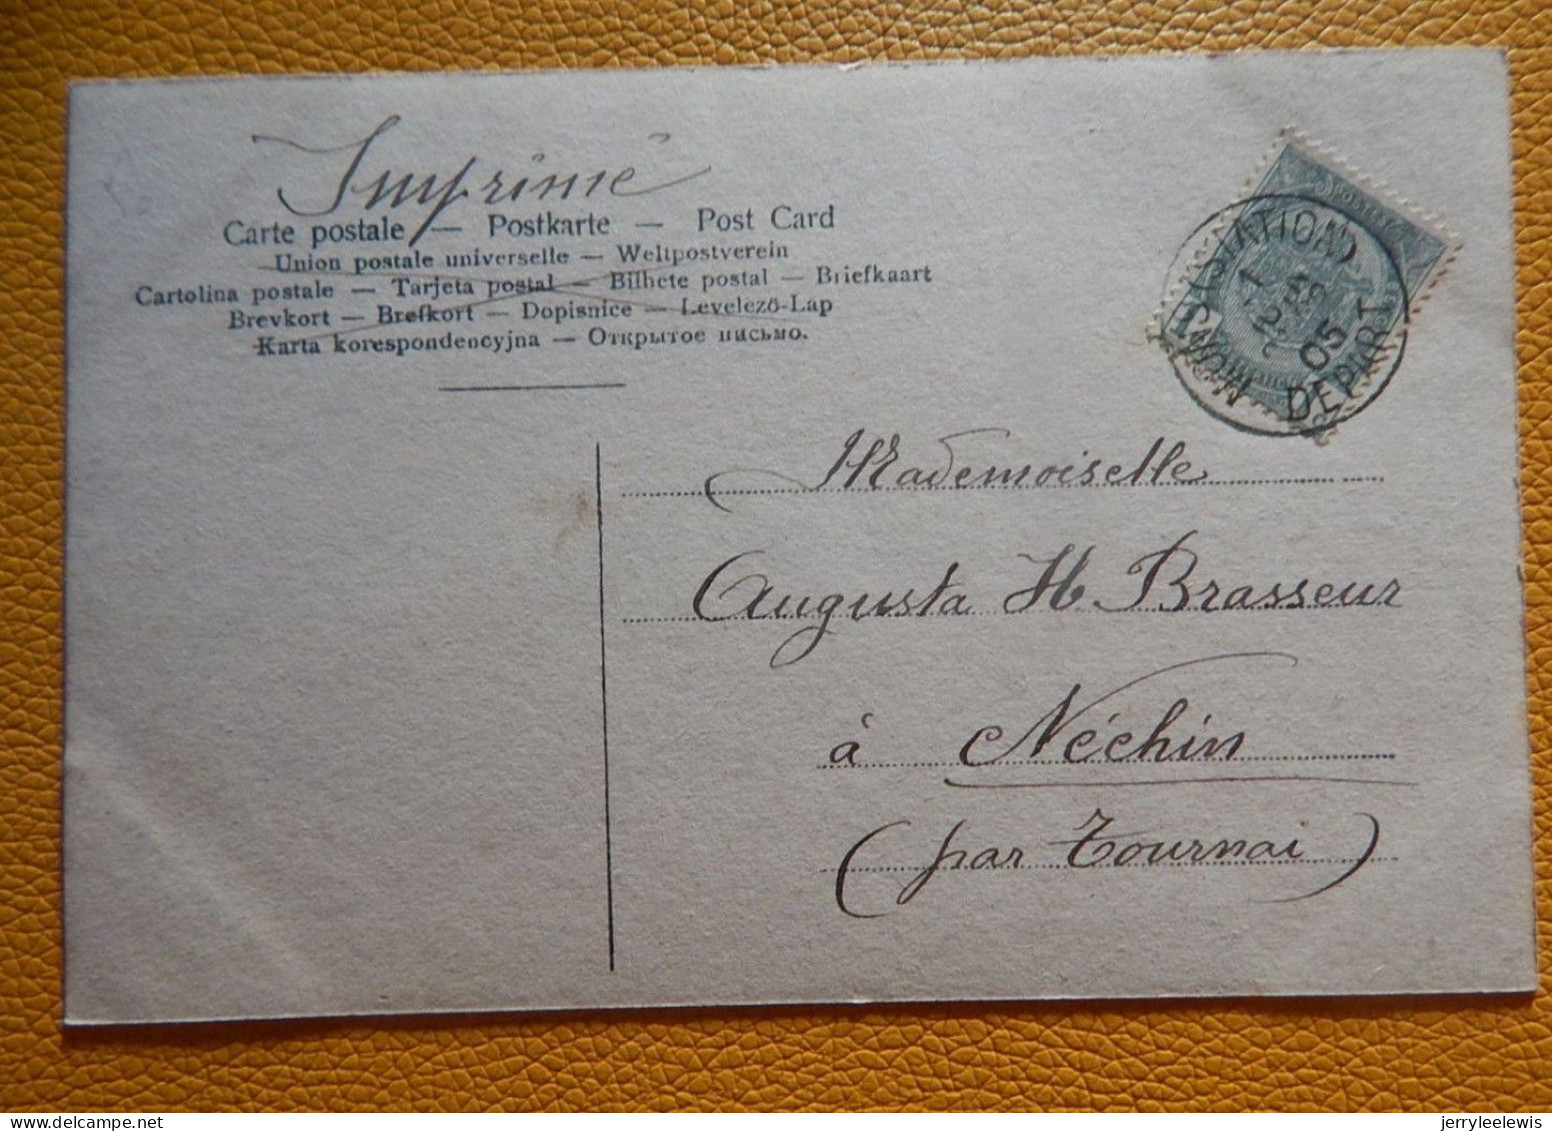 Imprimé
Carte postale — Postkarte — Post Card
Union postale universelle — Weltpostverein
Cartolina postale — Tarjeta postal — Bilhete postal — Briefkaart
Brevkort — Brefkort — Dopisnice — Levelező-Lap
Karta korespondencyjna — Открытое письмо.
(STATION)
05
DEPART
Mademoiselle
Augusta H. Brasseur
à Néchin
(par Tournai)
jerryleelewis